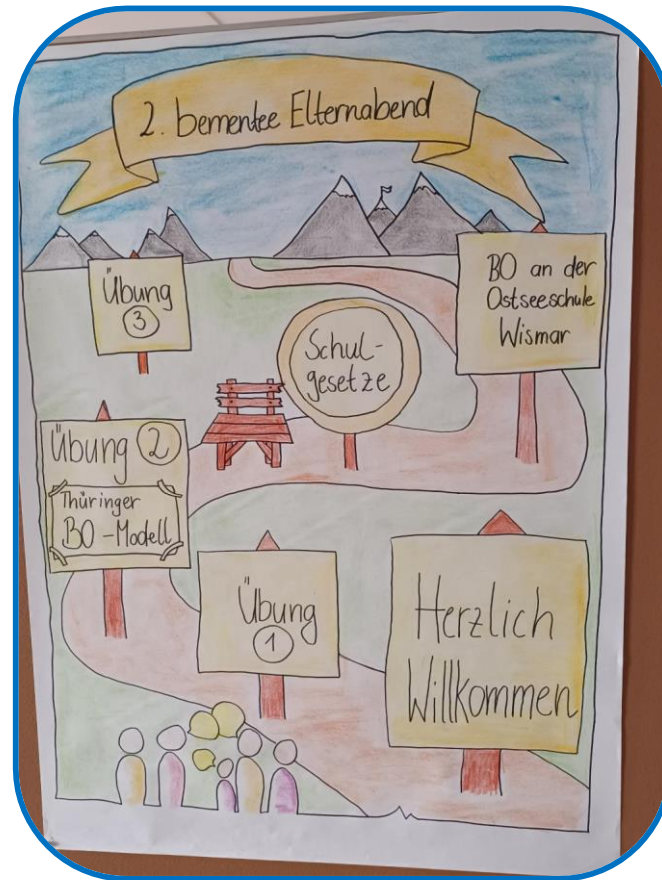 2. bementee Elternabend
BO an der
Ostseeschule
Wismar
Übung
3
Schul-
gesetze
Übung 2
Thüringer
BO-Modell
Übung
1
Herzlich
Willkommen